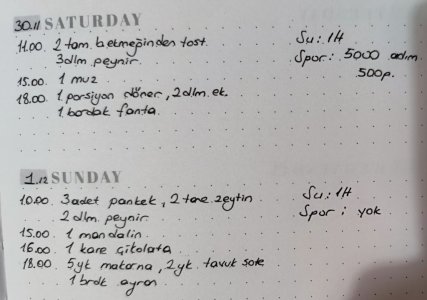 30.11 SATURDAY
11.00 2 tam ekmeğinden tost Su: 1lt
3dlm peynir. Spor: 5000 adım
500p.
15.00 1 muz
18.00 1 porsiyon döner, 2 dlm. ek.
1 bardak fanta.
1.12 SUNDAY
10.00 3 adet pankek, 2 tane zeytin Su: 1lt
2 dlm. peynir Spor: yok
15.00 1 mandalin
16.00 1 kare çikolata
18.00 5yk makarna, 2yk. tavuk sote
1 brdk ayran